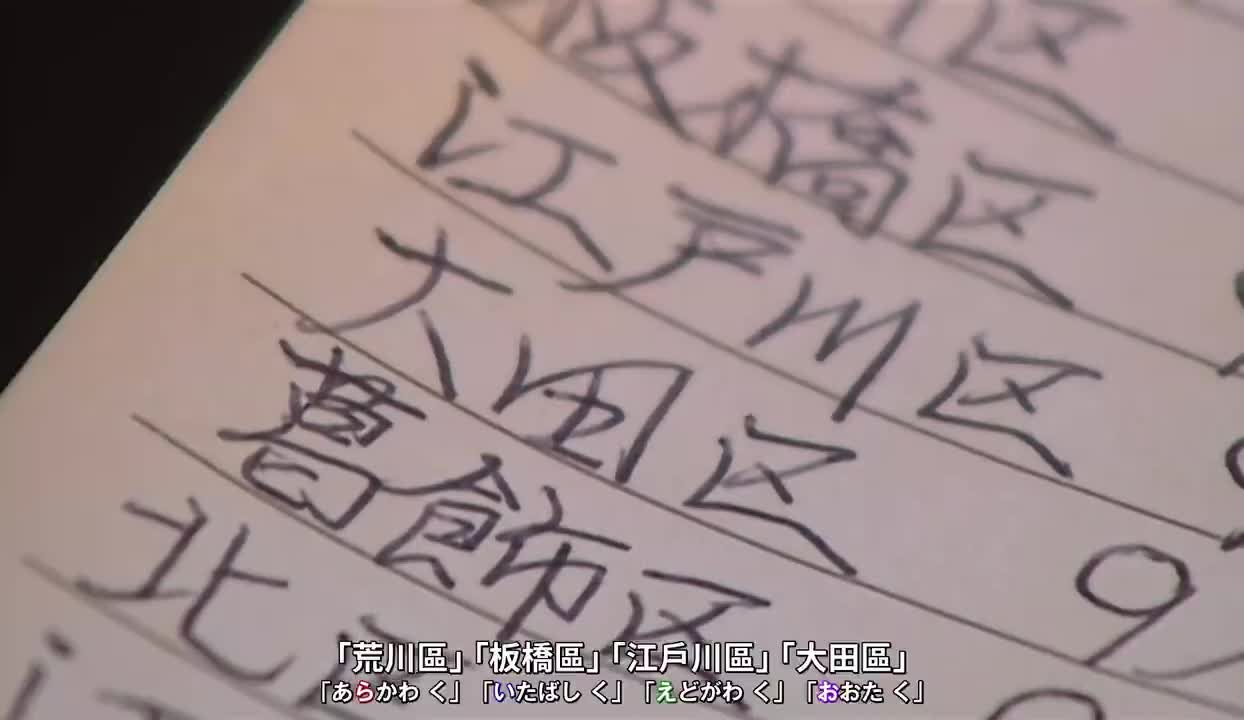 川区
板橋区
江戸川区
大田区
葛飾区 9
北区
江
「荒川區」「板橋區」「江戶川區」「大田區」
「あらかわ く」「いたばし く」「えどがわ く」「おおた く」